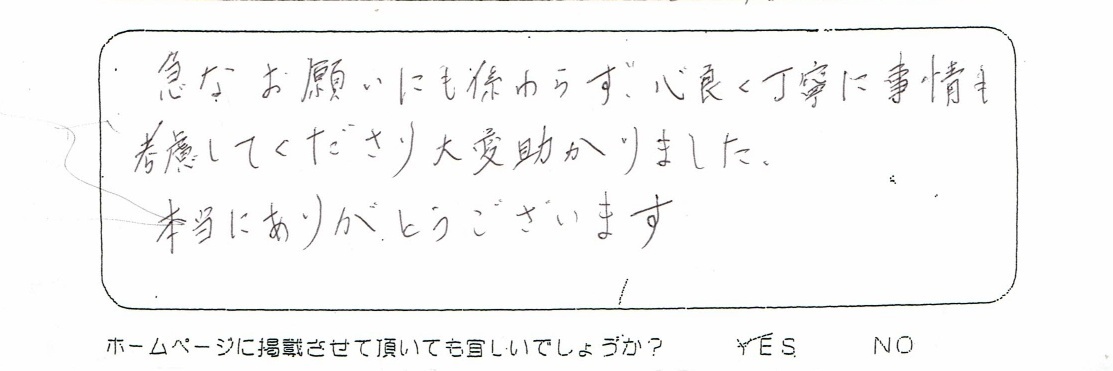 急なお願いにも係わらず、心良く丁寧に事情も
考慮してくださり大変助かりました。
本当にありがとうございます
ホームページに掲載させて頂いても宜しいでしょうか？ YES NO